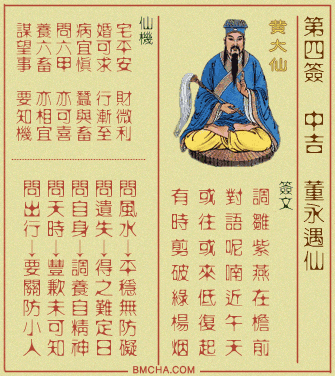 第四簽 中吉 董永遇仙
黃大仙
簽文
調雛紫燕在檐前
對語呢喃近午天
或往或來低復起
有時剪破綠楊烟
仙機
宅平安 財微利
婚可求 行漸至
病宜慎 蠶與畜
問六甲 亦可喜
養六畜 亦相宜
謀望事 要知機
問風水→平穩無防礙
問遺失→得之難定日
問自身→調養自精神
問天時→豐歉未可知
問出行→要關防小人
BMCHA.COM